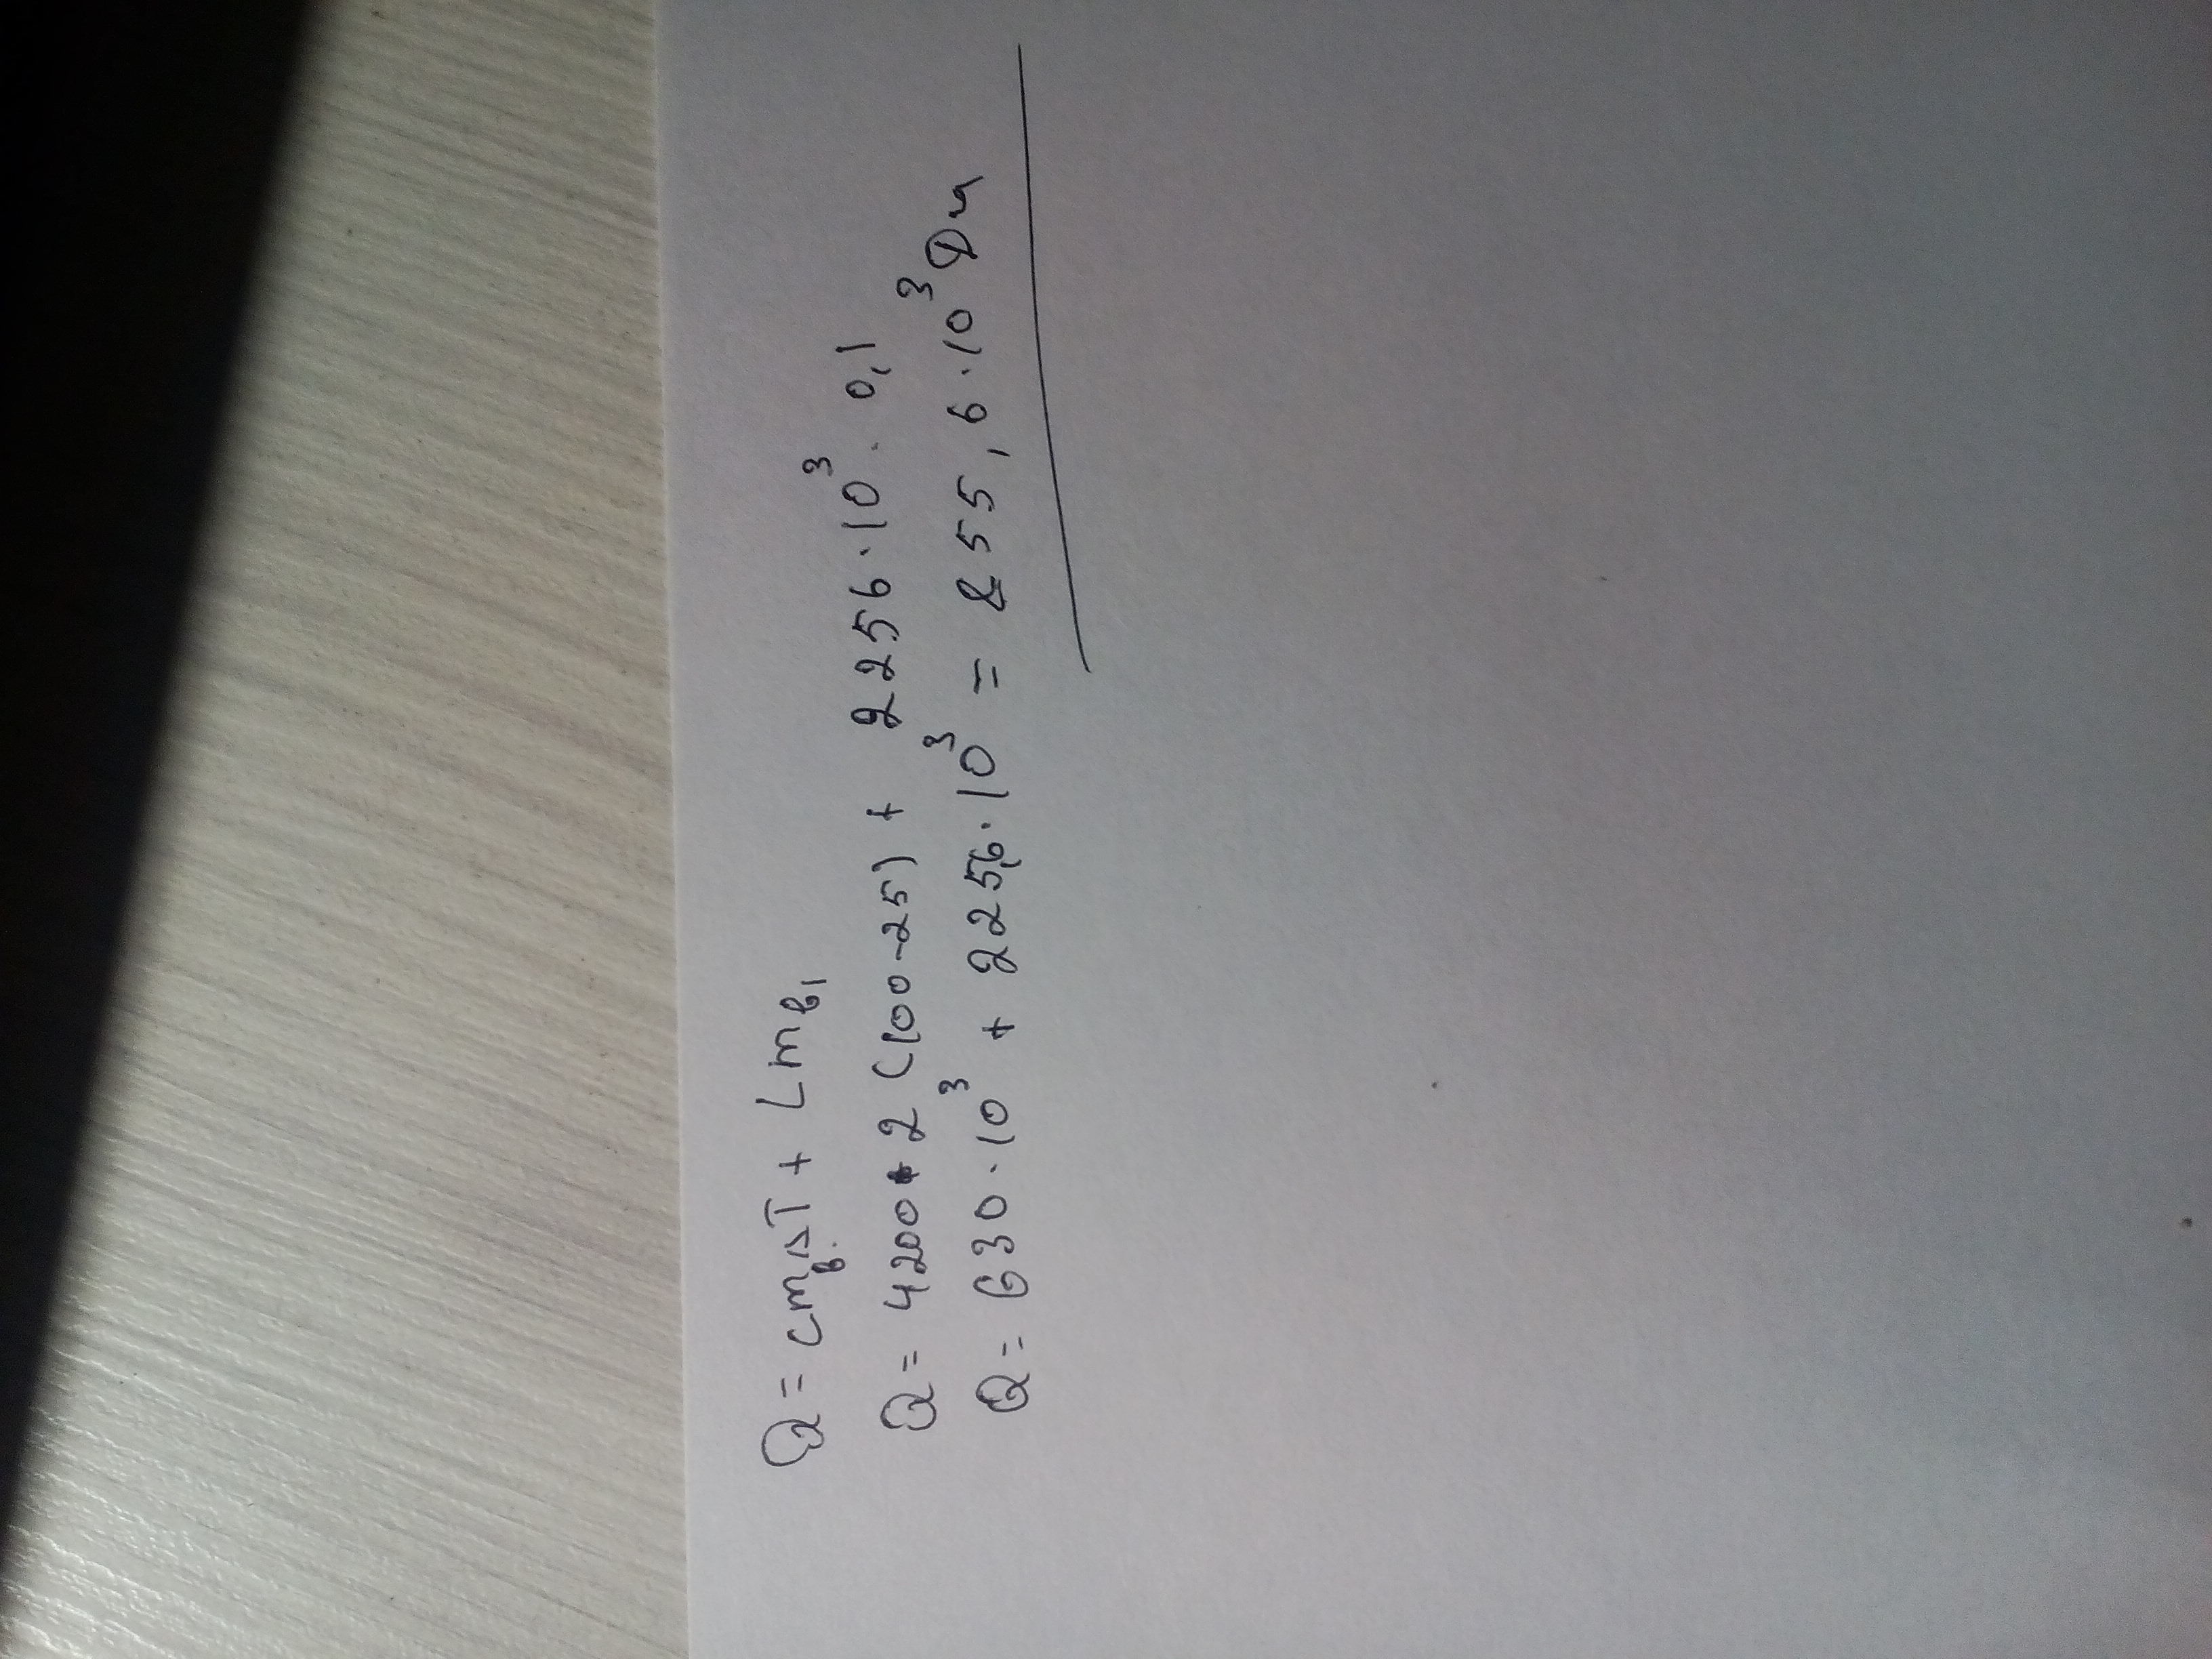 Q = cm_в ΔT + Lm_в1
Q = 4200 · 2 (100-25) + 2256·10³ · 0,1
Q = 630·10³ + 225,6·10³ = 855,6·10³ Дж